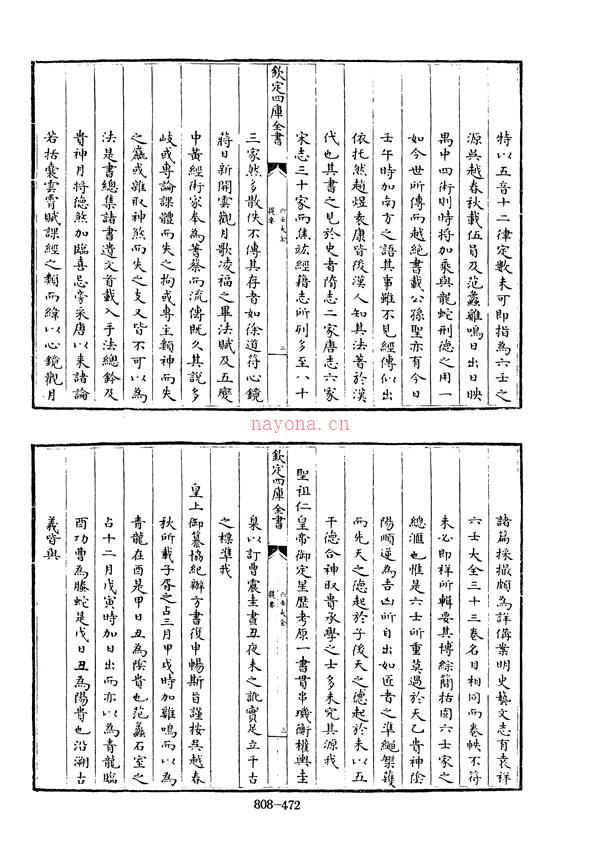 特以五音十二律定數未可即指為六壬之
源吳越春秋載伍員及范蠡雞鳴日出日昳
禺中四術則時將加乗與龍蛇刑徳之用一
如今世所傳而越絶書載公孫聖亦有今日
壬午時加南方之語其事雖不見經傳似出
依托然趙煜袁康皆後漢人知其法著於漢
代也其書之見於史者隋志二家唐志六家
宋志三十家而焦竑經籍志所列多至八十
欽定四庫全書
六壬大全
提要
二
三家然多散佚不傳其存者如徐道符心鏡
蔣日新開雲觀月歌凌福之畢法賦及五變
中黄經術家奉為蓍蔡而流傳既久其說多
岐或專論課體而失之拘或專主類神而失
之龎或雜取神煞而失之支又皆不可以為
法是書總集諸書遺文首載入手法總鈐及
貴神月將德煞加臨喜忌旁采唐以來諸論
若括囊雲霄賦課經之類而緯以心鏡觀月
諸篇採撷頗為詳備案明史藝文志有袁祥
六壬大全三十三卷名目相同而卷帙不符
未必即祥所輯要其博綜簡括固六壬家之
總滙也惟是六壬所重莫過於天乙貴神陰
陽順逆為吉凶所自出如匠者之準繩榘矱
而先天之徳起於子後天之徳起於未以五
干徳合神取貴承學之士多未究其源我
聖祖仁皇帝御定星歴考原一書貫串璣衡權輿圭
欽定四庫全書
六壬大全
提要
三
臬以訂曹震圭晝丑夜未之訛實足立千古
之標凖我
皇上御纂協紀辦方書復申暢斯旨謹按吳越春
秋所載子胥之占三月甲戌時加雞鳴而以為
青龍在酉是甲日丑為陰貴也范蠡石室之
占十二月戊寅時加日出而亦以為青龍臨
酉功曹為騰蛇是戊日丑為陽貴也沿溯古
義皆與
nayona.cn
808-472